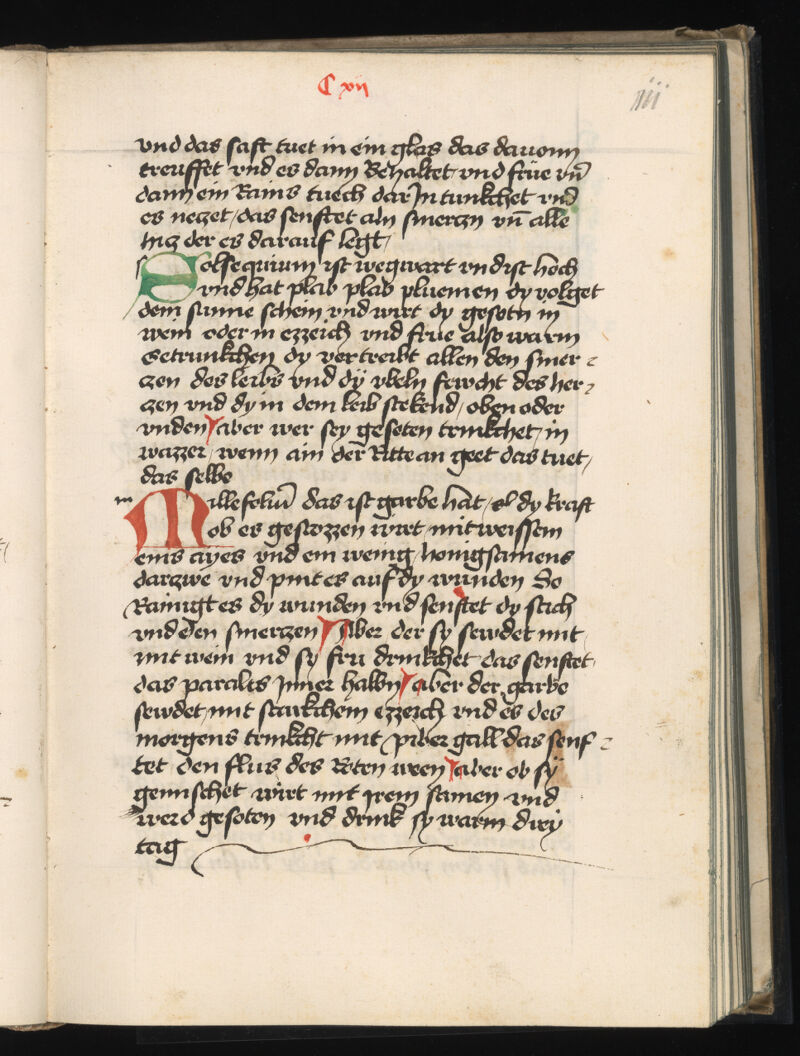 C xii
iiii
vnd das saft tuet in ein glas das dauonn
treuffet vnd es dann Behaltet vnd frue vn̄
dann ein Rains tuech dar In tunkchet vnd
es neczet / das senftet aln smerczn vn̄ alle
hicz der es darauf legt /
Solsequium ist wegwart vnd ist hoch
vnd hat plab plab pluemen dy volget
dem sunne schein vnd wirt dy gesotn in
wein oder in ezzeich vnd frue also warm
Getrunkchen dy vertreibt allen den smer-
czen des leibs vnd dÿ vbeln fewcht des her-
czen vnd dy in dem leib stekend / oben oder
vnden aber wer sey gesoten trinkchet / in
wazzer / wenn ain der Ritte an geet das tuet /
das selbe
m
Millefoliū das ist garbe hat / dy kraft
ob es gestozzen wirt mit weissem
eins ayes vnd ein wenig / honigsamens
darczwe vnd pint es auf dy wunden So
Rainigt es dy wunden vnd senftet dy stich
vnd den smerczen Aber der sy sewdet mit
mit wein vnd sy fru drinkchet das senftet
das paralis Inner halbn aber der garbe
sewdet / mit starkchem ezzeich vnd es des
morgens trinkcht mit piber gall das senf-
tet den flus des Roten ween aber ob sÿ
gemischet wirt mit irem samen vnd
werd gesoten vnd drink sy warm drey
tag